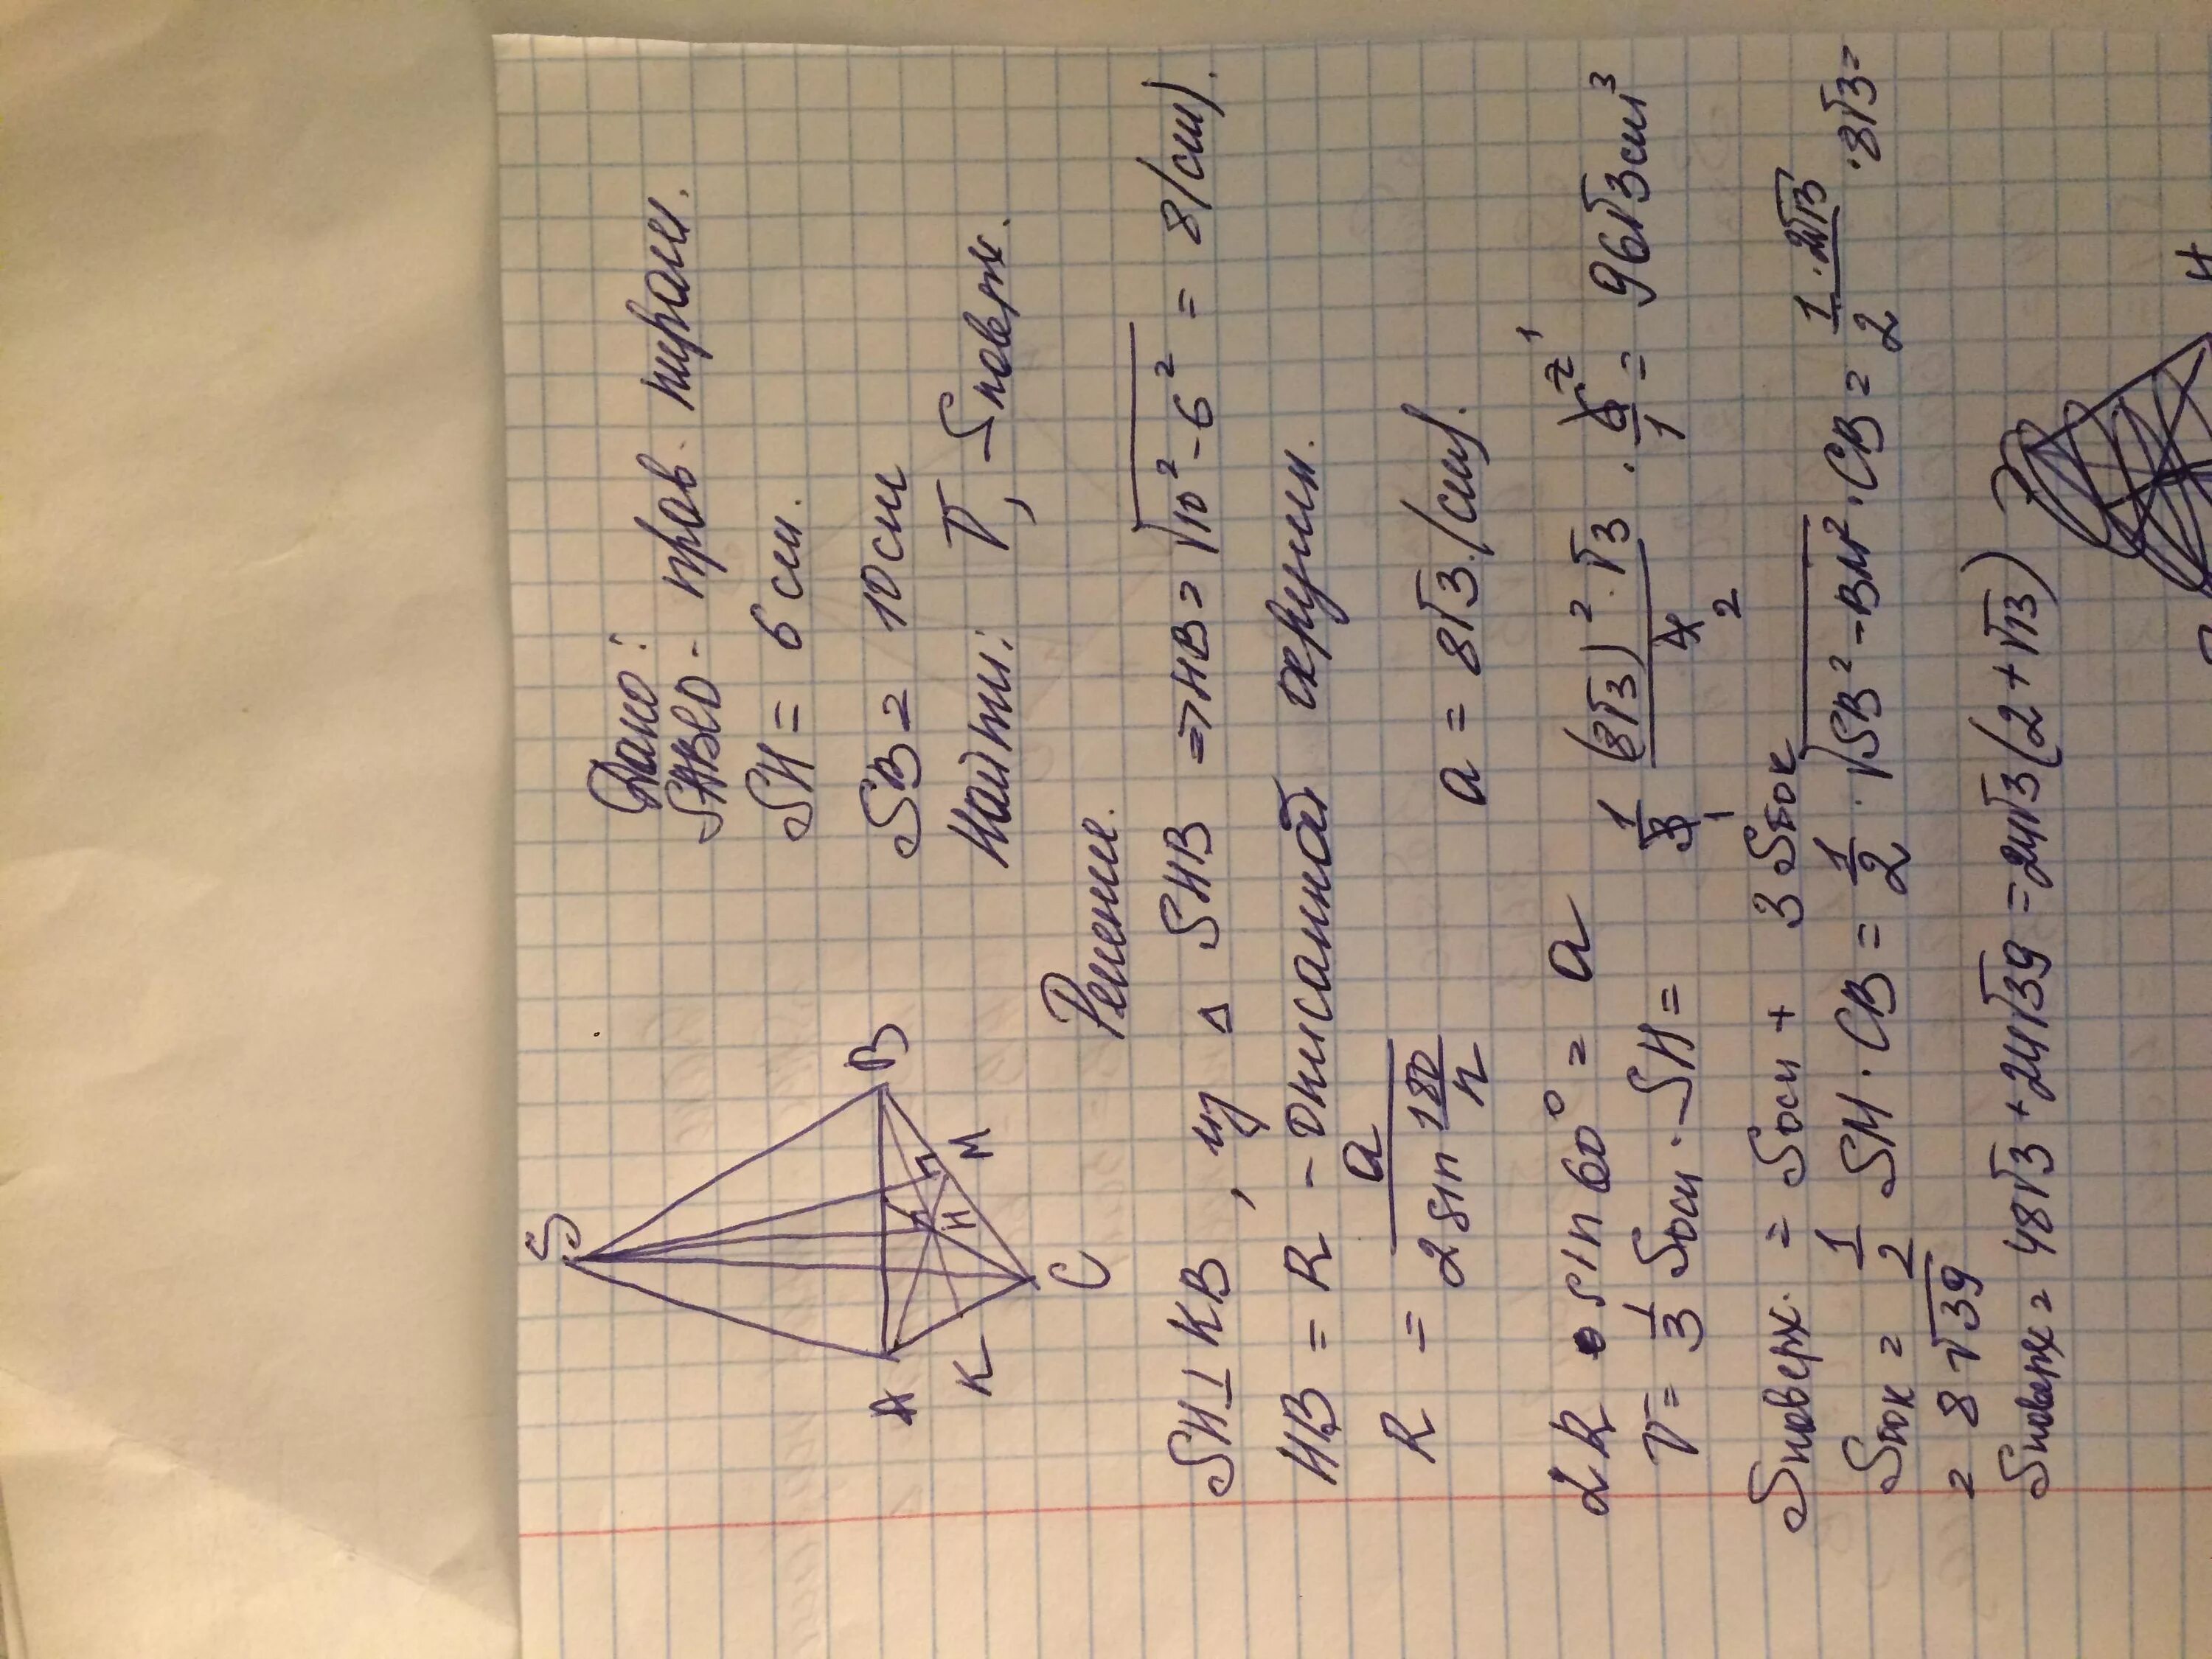 S
A
B
K
H
M
C
Дано:
SABCD - прав. пирам.
SH = 6 см.
SB = 10 см
Найти: V, Sповерх.
Решение.
SH ⊥ KB, из △ SHB => HB = √10² - 6² = 8 (см).
HB = R - описанной окружн.
R = a / 2 sin 180/n
a = 8√3 (см).
2R · sin 60° = a
V = 1/3 Sосн · SH = 1/3 · (8√3)² · √3 / 4 · 6/1 = 96√3 см³
Sповерх. = Sосн + 3 Sбок
Sбок = 1/2 SM · CB = 1/2 · √SB² - BM² · CB = 1 · 2√13 / 2 · 8√3 =
= 8√39
Sповерх = 48√3 + 24√39 = 24√3 (2 + √13)